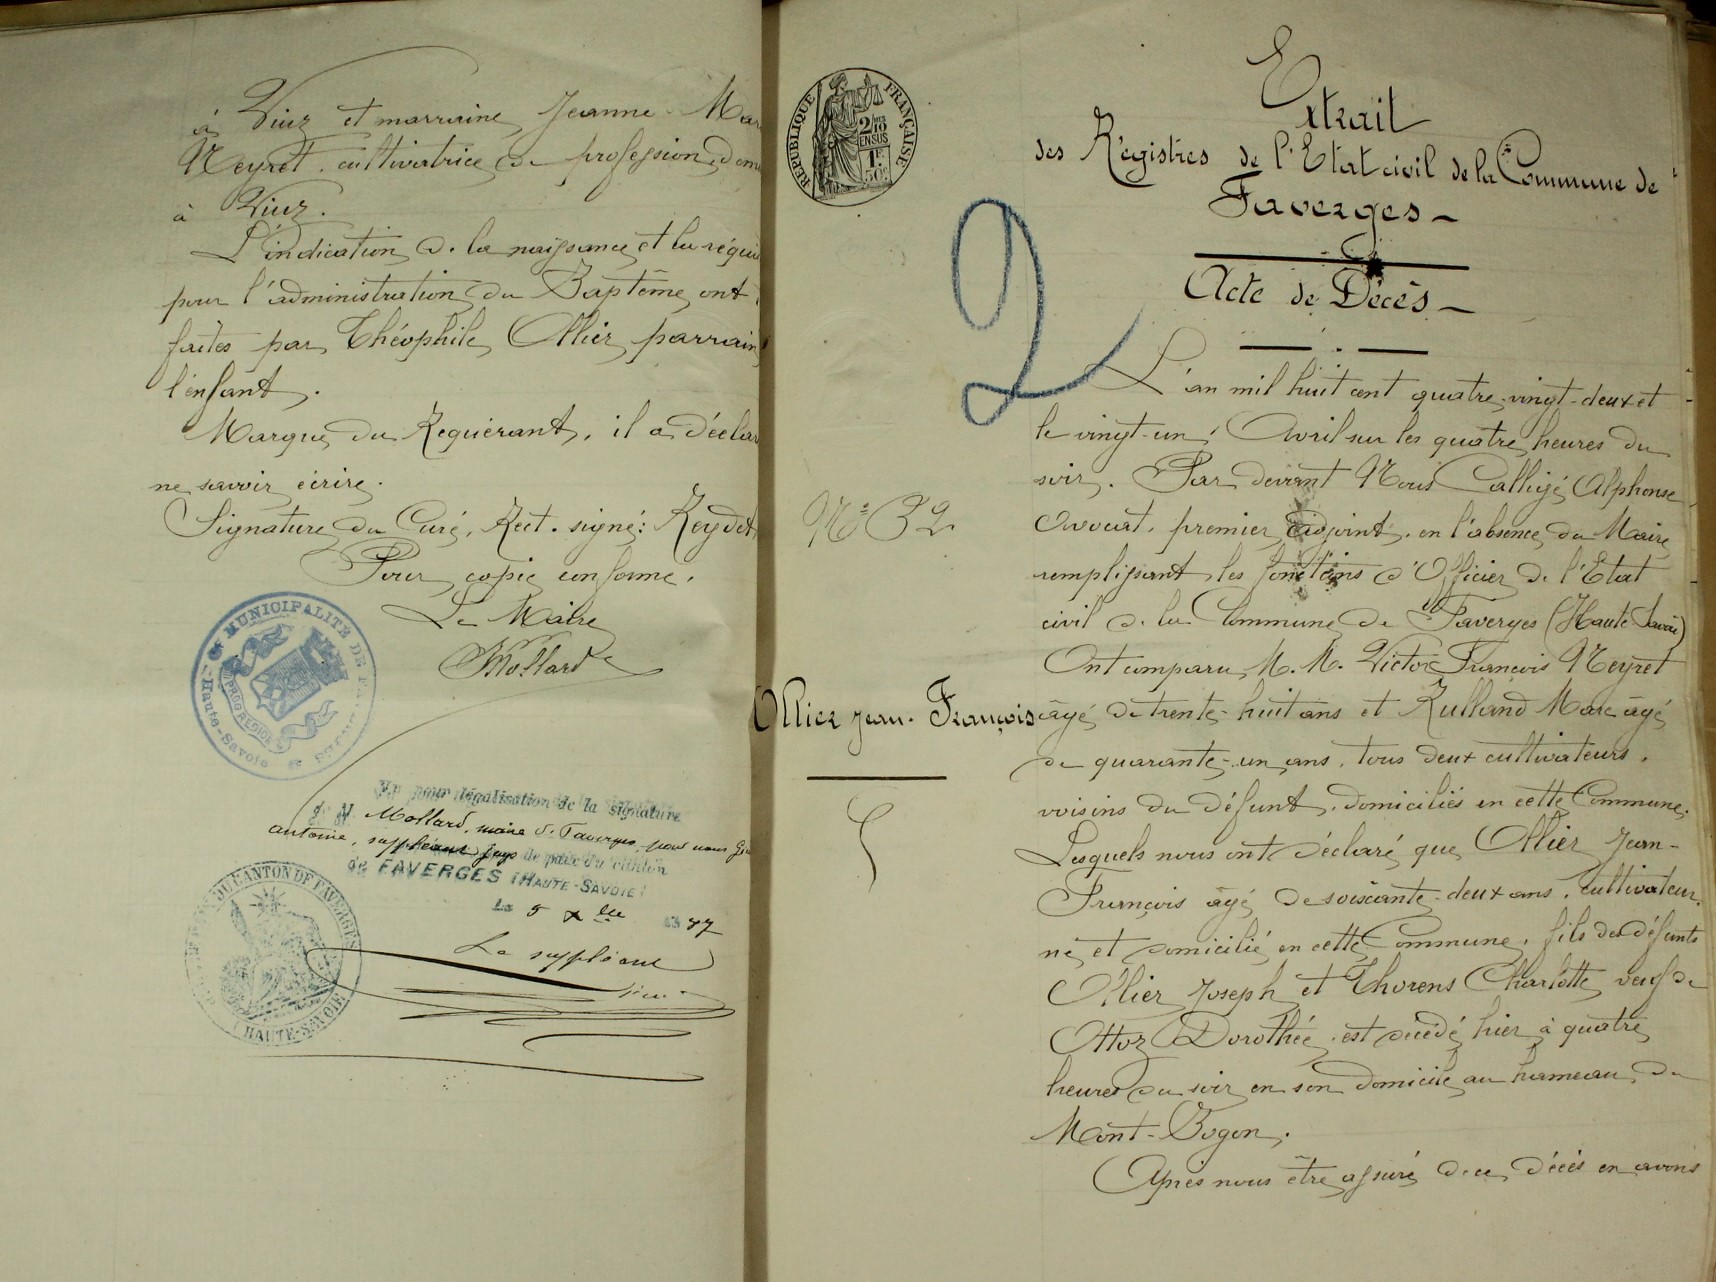 à Viuz et marraine Jeanne-Mar
Neyret, cultivatrice de profession, dom
à Viuz.
L'indication de la naissance et la réqui
pour l'administration du Baptême ont
faites par Théophile Ollier parrain
l'enfant.
Marque du Requérant, il a déclar
ne savoir écrire.
Signature du Curé, Rect. signé: Reydet
Pour copie conforme,
Le Maire
Mollard
MUNICIPALITÉ DE
Haute-Savoie
Vu pour légalisation de la signature
de M. Mollard, maire de Faverges, par nous
antoine, suppléant juge de paix du canton
de FAVERGES (HAUTE-SAVOIE)
Le 5 xbre 1897
Le suppléant
DU CANTON DE FAVERGES
(HAUTE-SAVOIE)
RÉPUBLIQUE FRANÇAISE
2/10
EN SUS
1F
50c
Extrait
des Régistres de l'Etat civil de la Commune de
Faverges
Acte de Décès
2
L'an mil huit cent quatre-vingt-deux et
le vingt-un Avril sur les quatre heures du
soir. Par devant Nous Calligé Alphonse
N° 32
Avocat, premier adjoint, en l'absence du Maire
remplissant les fonctions d'Officier de l'Etat
civil de la Commune de Faverges (Haute Savoie)
Ont comparu M.M. Victor François Neyret
Ollier Jean-François
âgé de trente-huit ans et Rulland Marc âgé
de quarante-un ans, tous deux cultivateurs,
voisins du défunt, domiciliés en cette Commune.
Lesquels nous ont déclaré que Ollier Jean-
François âgé de soixante-deux ans, cultivateur,
né et domicilié en cette Commune, fils des défunts
Ollier Joseph et Thorens Charlotte, veuf de
Ottoz Dorothée, est décédé hier à quatre
heures du soir en son domicile au hameau du
Mont-Bogon.
Après nous être assuré de ce décès en avons